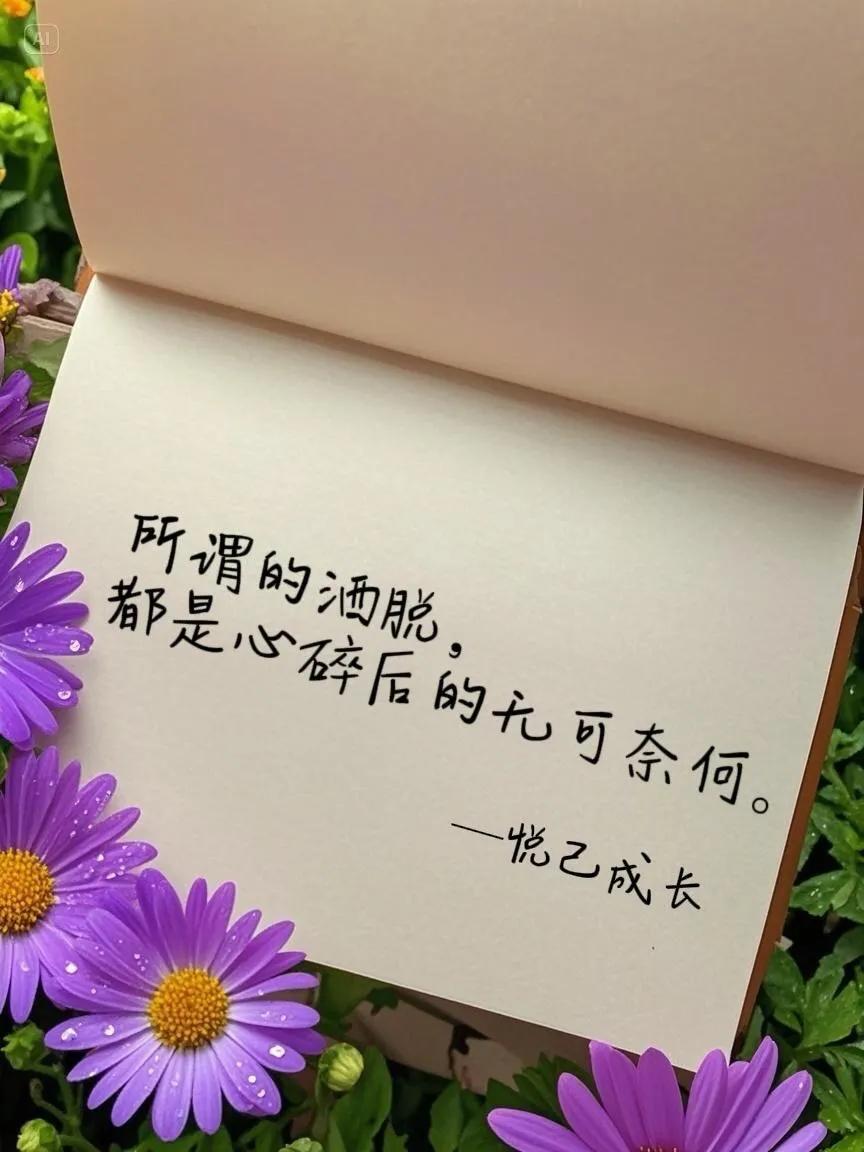 AI
所谓的洒脱，
都是心碎后的无可奈何。
——悦己成长